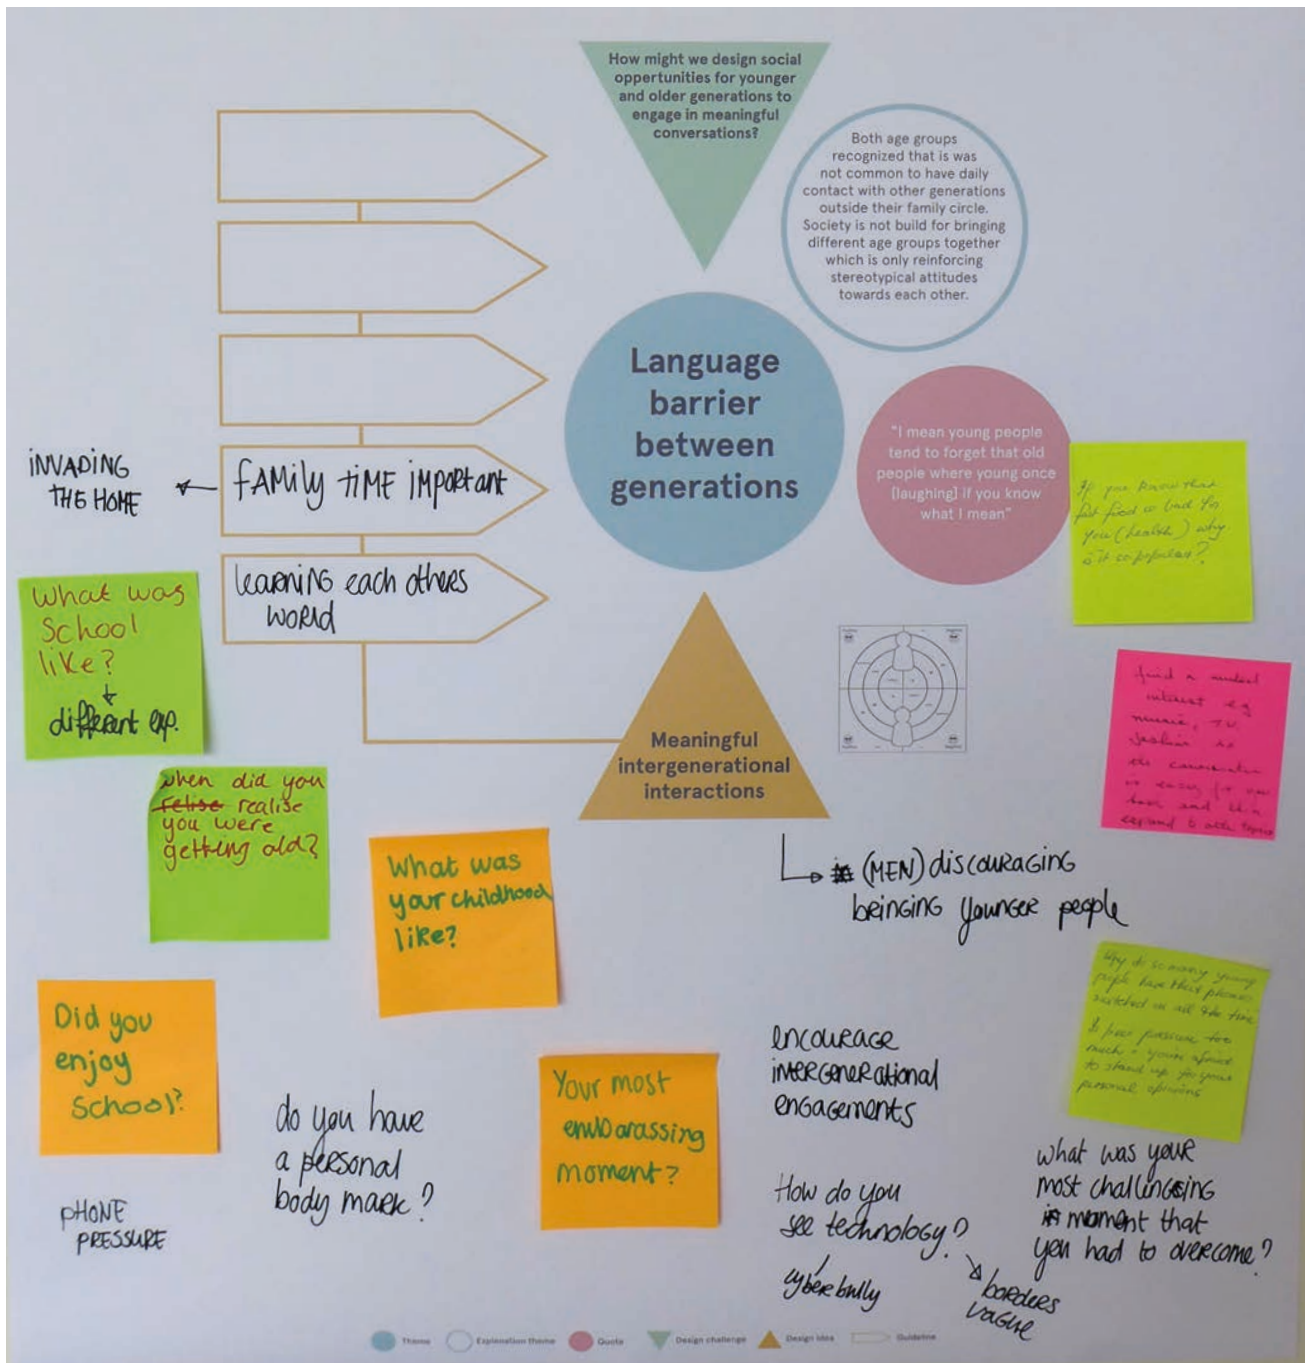 How might we design social
oppertunities for younger
and older generations to
engage in meaningful
conversations?
Both age groups
recognized that is was
not common to have daily
contact with other generations
outside their family circle.
Society is not build for bringing
different age groups together
which is only reinforcing
stereotypical attitudes
towards each other.
Language
barrier
between
generations
"I mean young people
tend to forget that old
people where young once
[laughing] if you know
what I mean"
INVADING
THE HOME
FAMILY TIME IMPORTANT
learning each others
WORLD
If you know that
fast food is bad for
you (health) why
is it so popular?
What was
School
like?
different exp.
find a mutual
interest eg
music, TV.
fashion so
the conversation
is easy for you
both and then
expand to other topics
Meaningful
intergenerational
interactions
when did you
relise realise
you were
getting old?
What was
your childhood
like?
(MEN) discouraging
bringing younger people
Why do so many young
people have their phones
switched on all the time
Is peer pressure too
much - you're afraid
to stand up for your
personal opinions
Did you
enjoy
School?
do you have
a personal
body mark?
Your most
embarassing
moment?
encourage
intergenerational
engagements
PHONE
PRESSURE
How do you
see technology?
cyberbully
borders
vague
what was your
most challingsing
moment that
you had to overcome?
Theme
Explanation theme
Quote
Design challenge
Design idea
Guideline